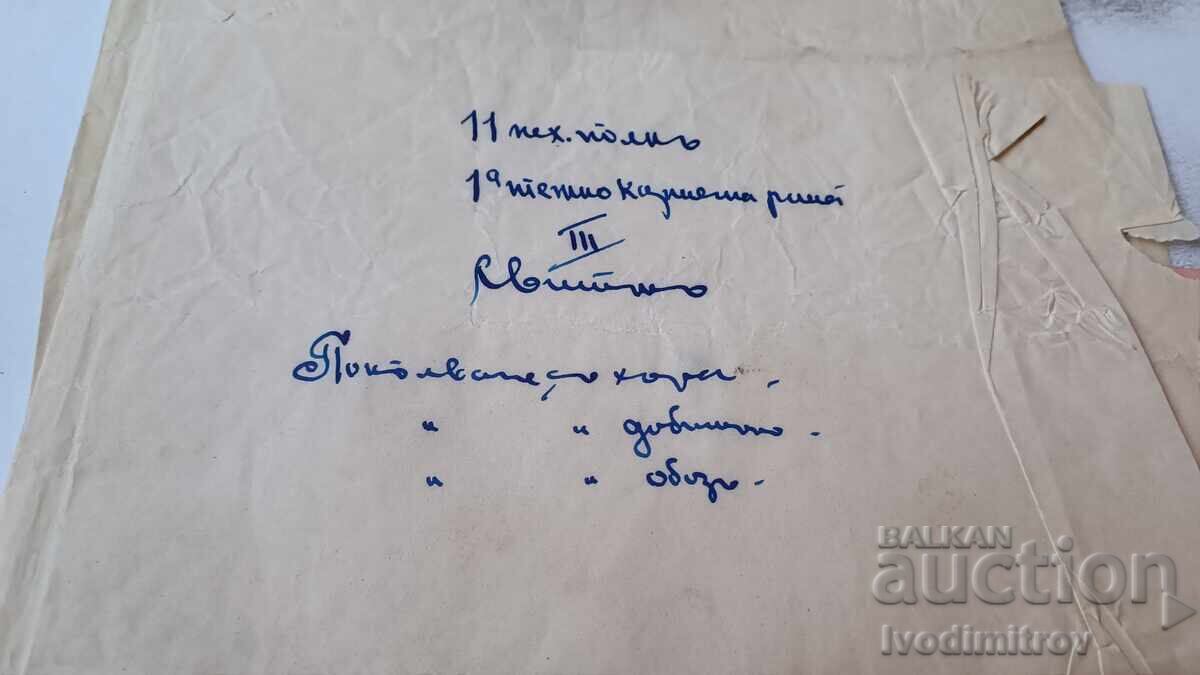 11 пех. полкъ
1а тежко картечна рота
III
Попълване съ хора.
" " добитъкъ.
" " обозъ.
BALKAN
auction
Ivodimitrov